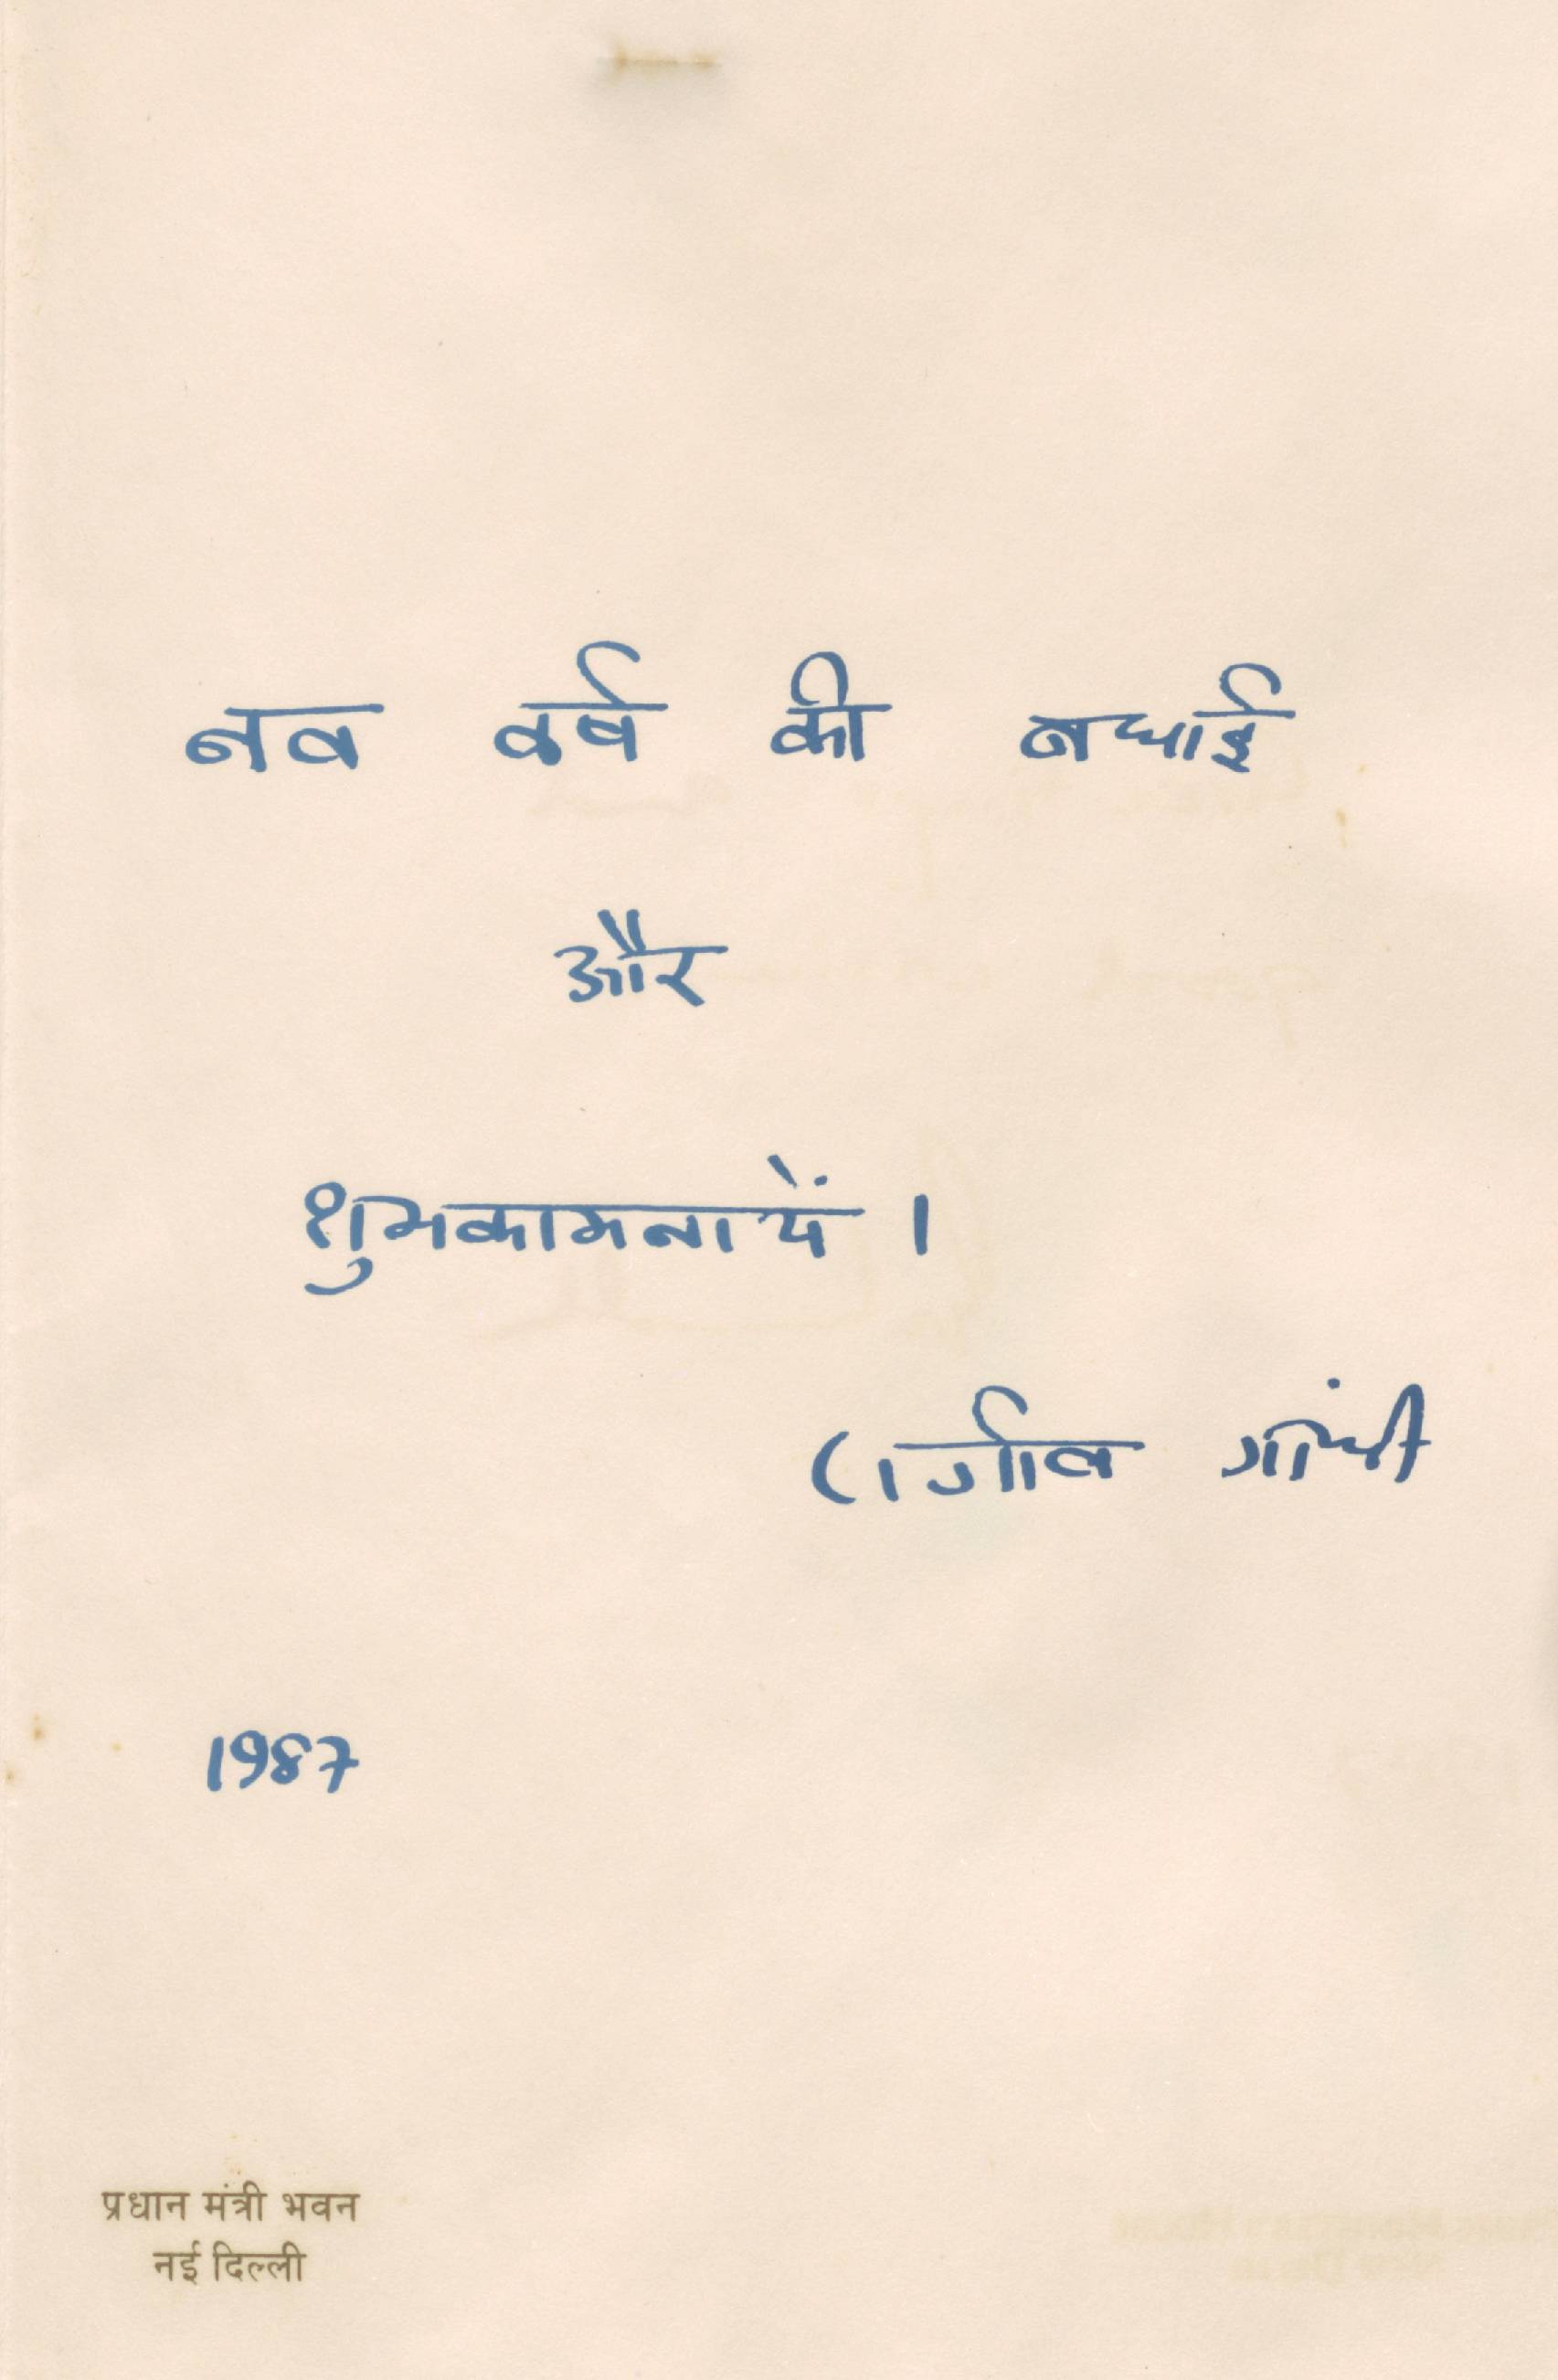 नव वर्ष की बधाई
और
शुभकामनायें ।
राजीव गांधी
1987
प्रधान मंत्री भवन
नई दिल्ली